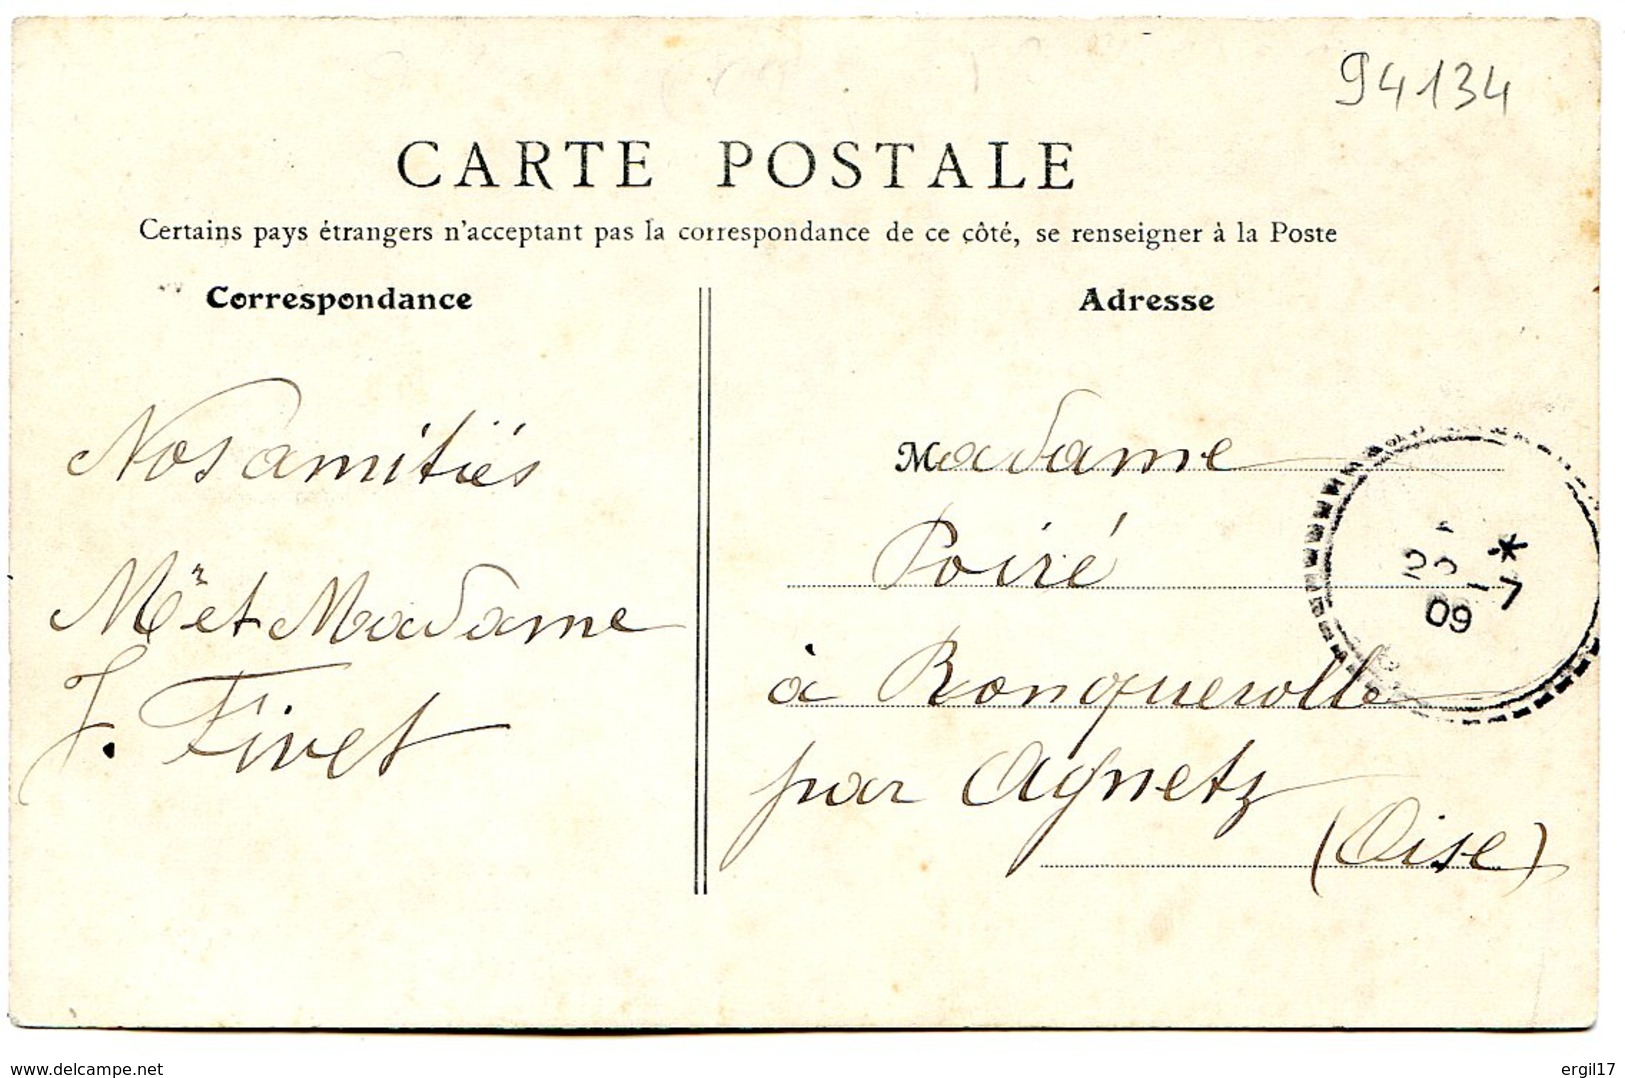 94134
CARTE POSTALE
Certains pays étrangers n'acceptant pas la correspondance de ce côté, se renseigner à la Poste
Correspondance
Adresse
Nos amitiés
Mr et Madame
J. Fivet
Madame
Poiré
à Ronquerolle
par Agnetz
(Oise)
*
-7
09
www.delcampe.net
ergil17